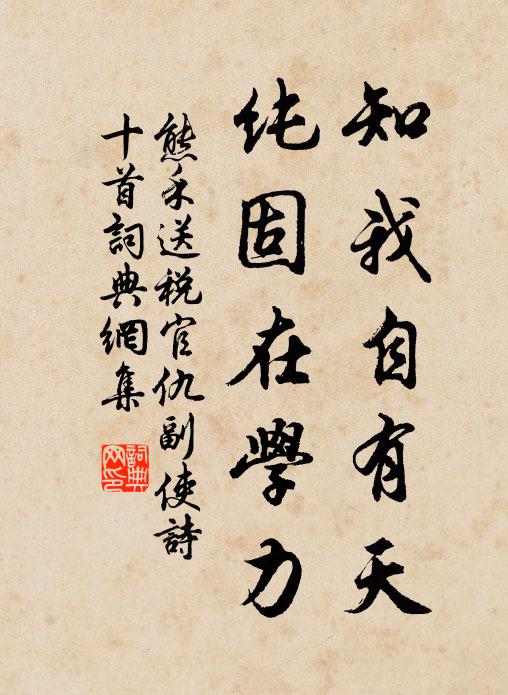 知我自有天
纯固在學力
熊禾送税官仇副使詩
十首詞典網集
詞典網印